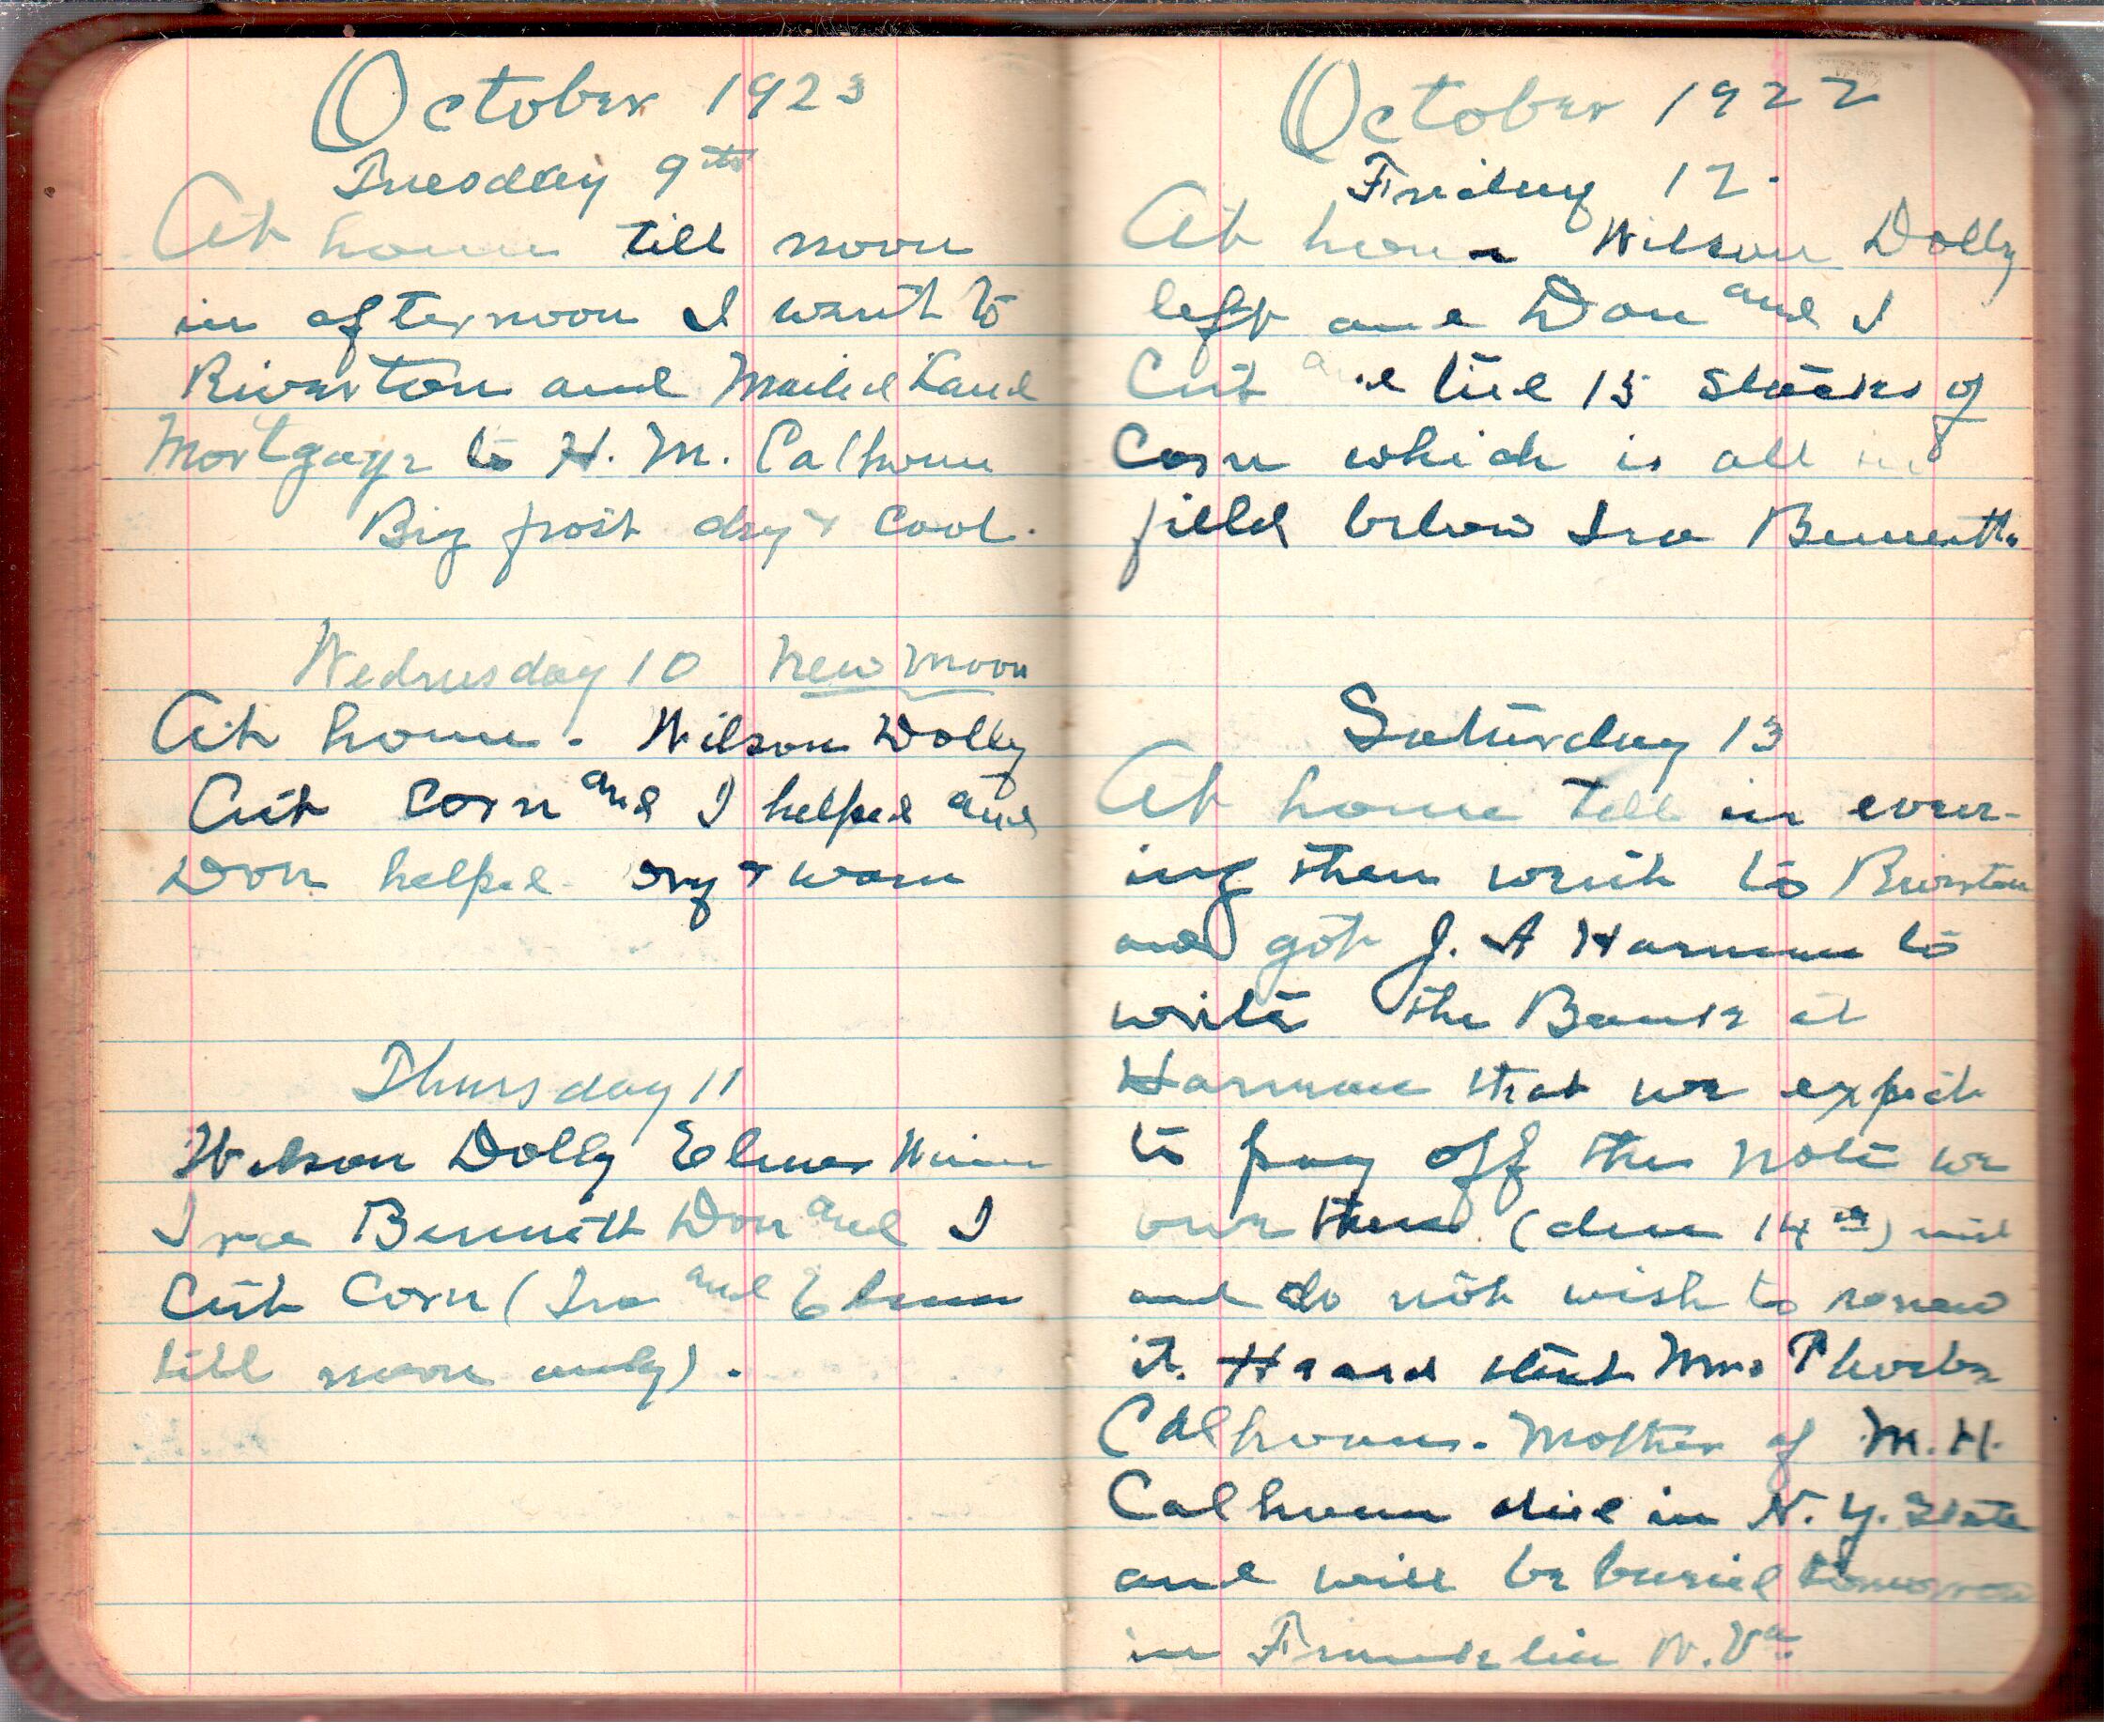 October 1923
Tuesday 9th
At home till noon
in afternoon I went to
Riverton and Mailed Land
Mortgage to H. M. Calhoun
Big frost dry & cool.
Wednesday 10 New Moon
At home. Wilson Dolly
Cut corn and I helped and
Don helped dry & warm
Thursday 11
Wilson Dolly Elmer
Ira Bennett Don and I
Cut Corn (Ira and Elmer
till noon only).
October 1922
Friday 12.
At home Wilson Dolly
left and Don and I
Cut and tied 15 stacks of
Corn which is all in
field below Ira Bennetts
Saturday 13
At home till in even-
ing then went to Riverton
and got J. A Harman to
write the Bank at
Harman that we expect
to pay off the note we
owe them (due 14th)
and do not wish to renew
it. Heard that Mrs Phoebe
Calhoun. Mother of M. H.
Calhoun died in N. Y. State
and will be buried tomorrow
in Franklin W. Va.